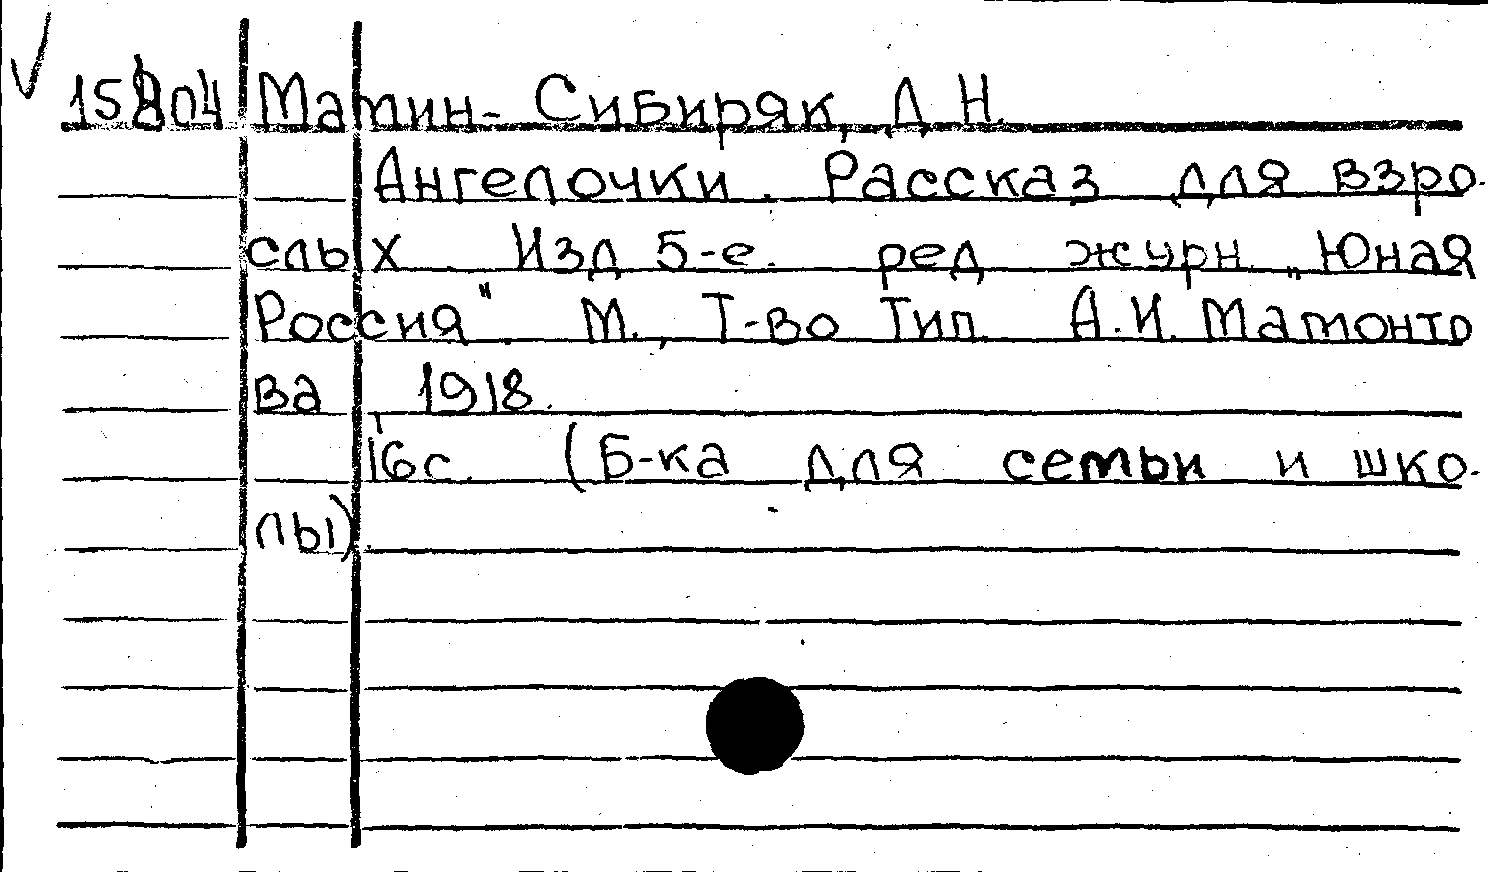 15804 Мамин- Сибиряк, Д.Н.
Ангелочки. Рассказ для взро-
слых. Изд 5-е. ред журн. „Юная
Россия". М., Т-во Тип. А.И. Мамонто
ва, 1918.
16с. (Б-ка для семьи и шко-
лы).